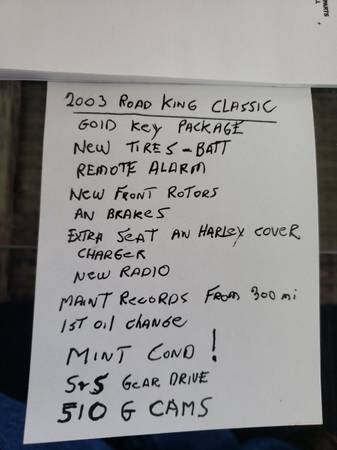 PARTS
2003 ROAD KING CLASSIC
GOLD KEY PACKAGE
NEW TIRES - BATT
REMOTE ALARM
NEW FRONT ROTORS
AN BRAKES
EXTRA SEAT AN HARLEY COVER
CHARGER
NEW RADIO
MAINT RECORDS FROM 300 mi
1ST OIL CHANGE
MINT COND !
S&S GEAR DRIVE
510 G CAMS